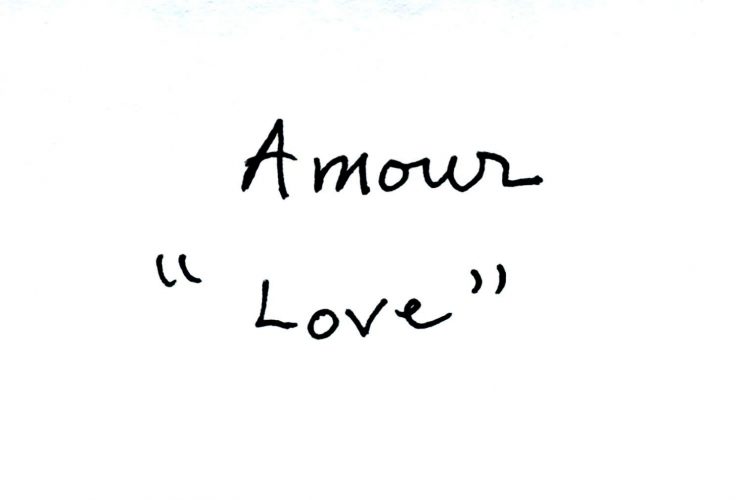 Amour
“Love”